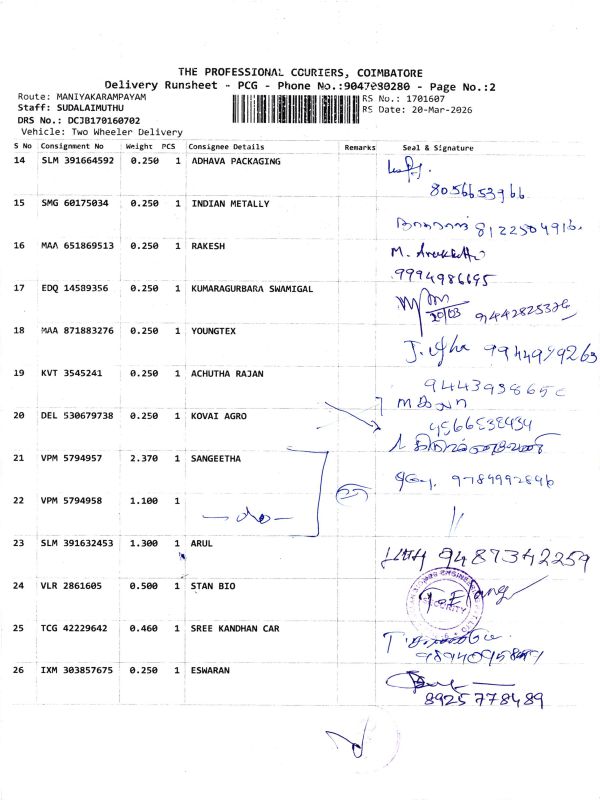 THE PROFESSIONAL COURIERS, COIMBATORE
Delivery Runsheet - PCG - Phone No.:9047280280 - Page No.:2
Route: MANIYAKARAMPAYAM
RS No.: 1701607
Staff: SUDALAIMUTHU
RS Date: 20-Mar-2026
DRS No.: DCJB170160702
Vehicle: Two Wheeler Delivery
S No Consignment No Weight PCS Consignee Details Remarks Seal & Signature
14 SLM 391664592 0.250 1 ADHAVA PACKAGING
8056653966
15 SMG 60175034 0.250 1 INDIAN METALLY
8122504916
16 MAA 651869513 0.250 1 RAKESH
M.
9994986695
17 EDQ 14589356 0.250 1 KUMARAGURBARA SWAMIGAL
20/03 9442825326
18 MAA 871883276 0.250 1 YOUNGTEX
J. Usha 9944949263
19 KVT 3545241 0.250 1 ACHUTHA RAJAN
20 DEL 530679738 0.250 1 KOVAI AGRO
21 VPM 5794957 2.370 1 SANGEETHA
9789992846
22 VPM 5794958 1.100 1
-do-
23 SLM 391632453 1.300 1 ARUL
9487342259
24 VLR 2861605 0.500 1 STAN BIO
SECURITY
25 TCG 42229642 0.460 1 SREE KANDHAN CAR
26 IXM 303857675 0.250 1 ESWARAN
8925778489